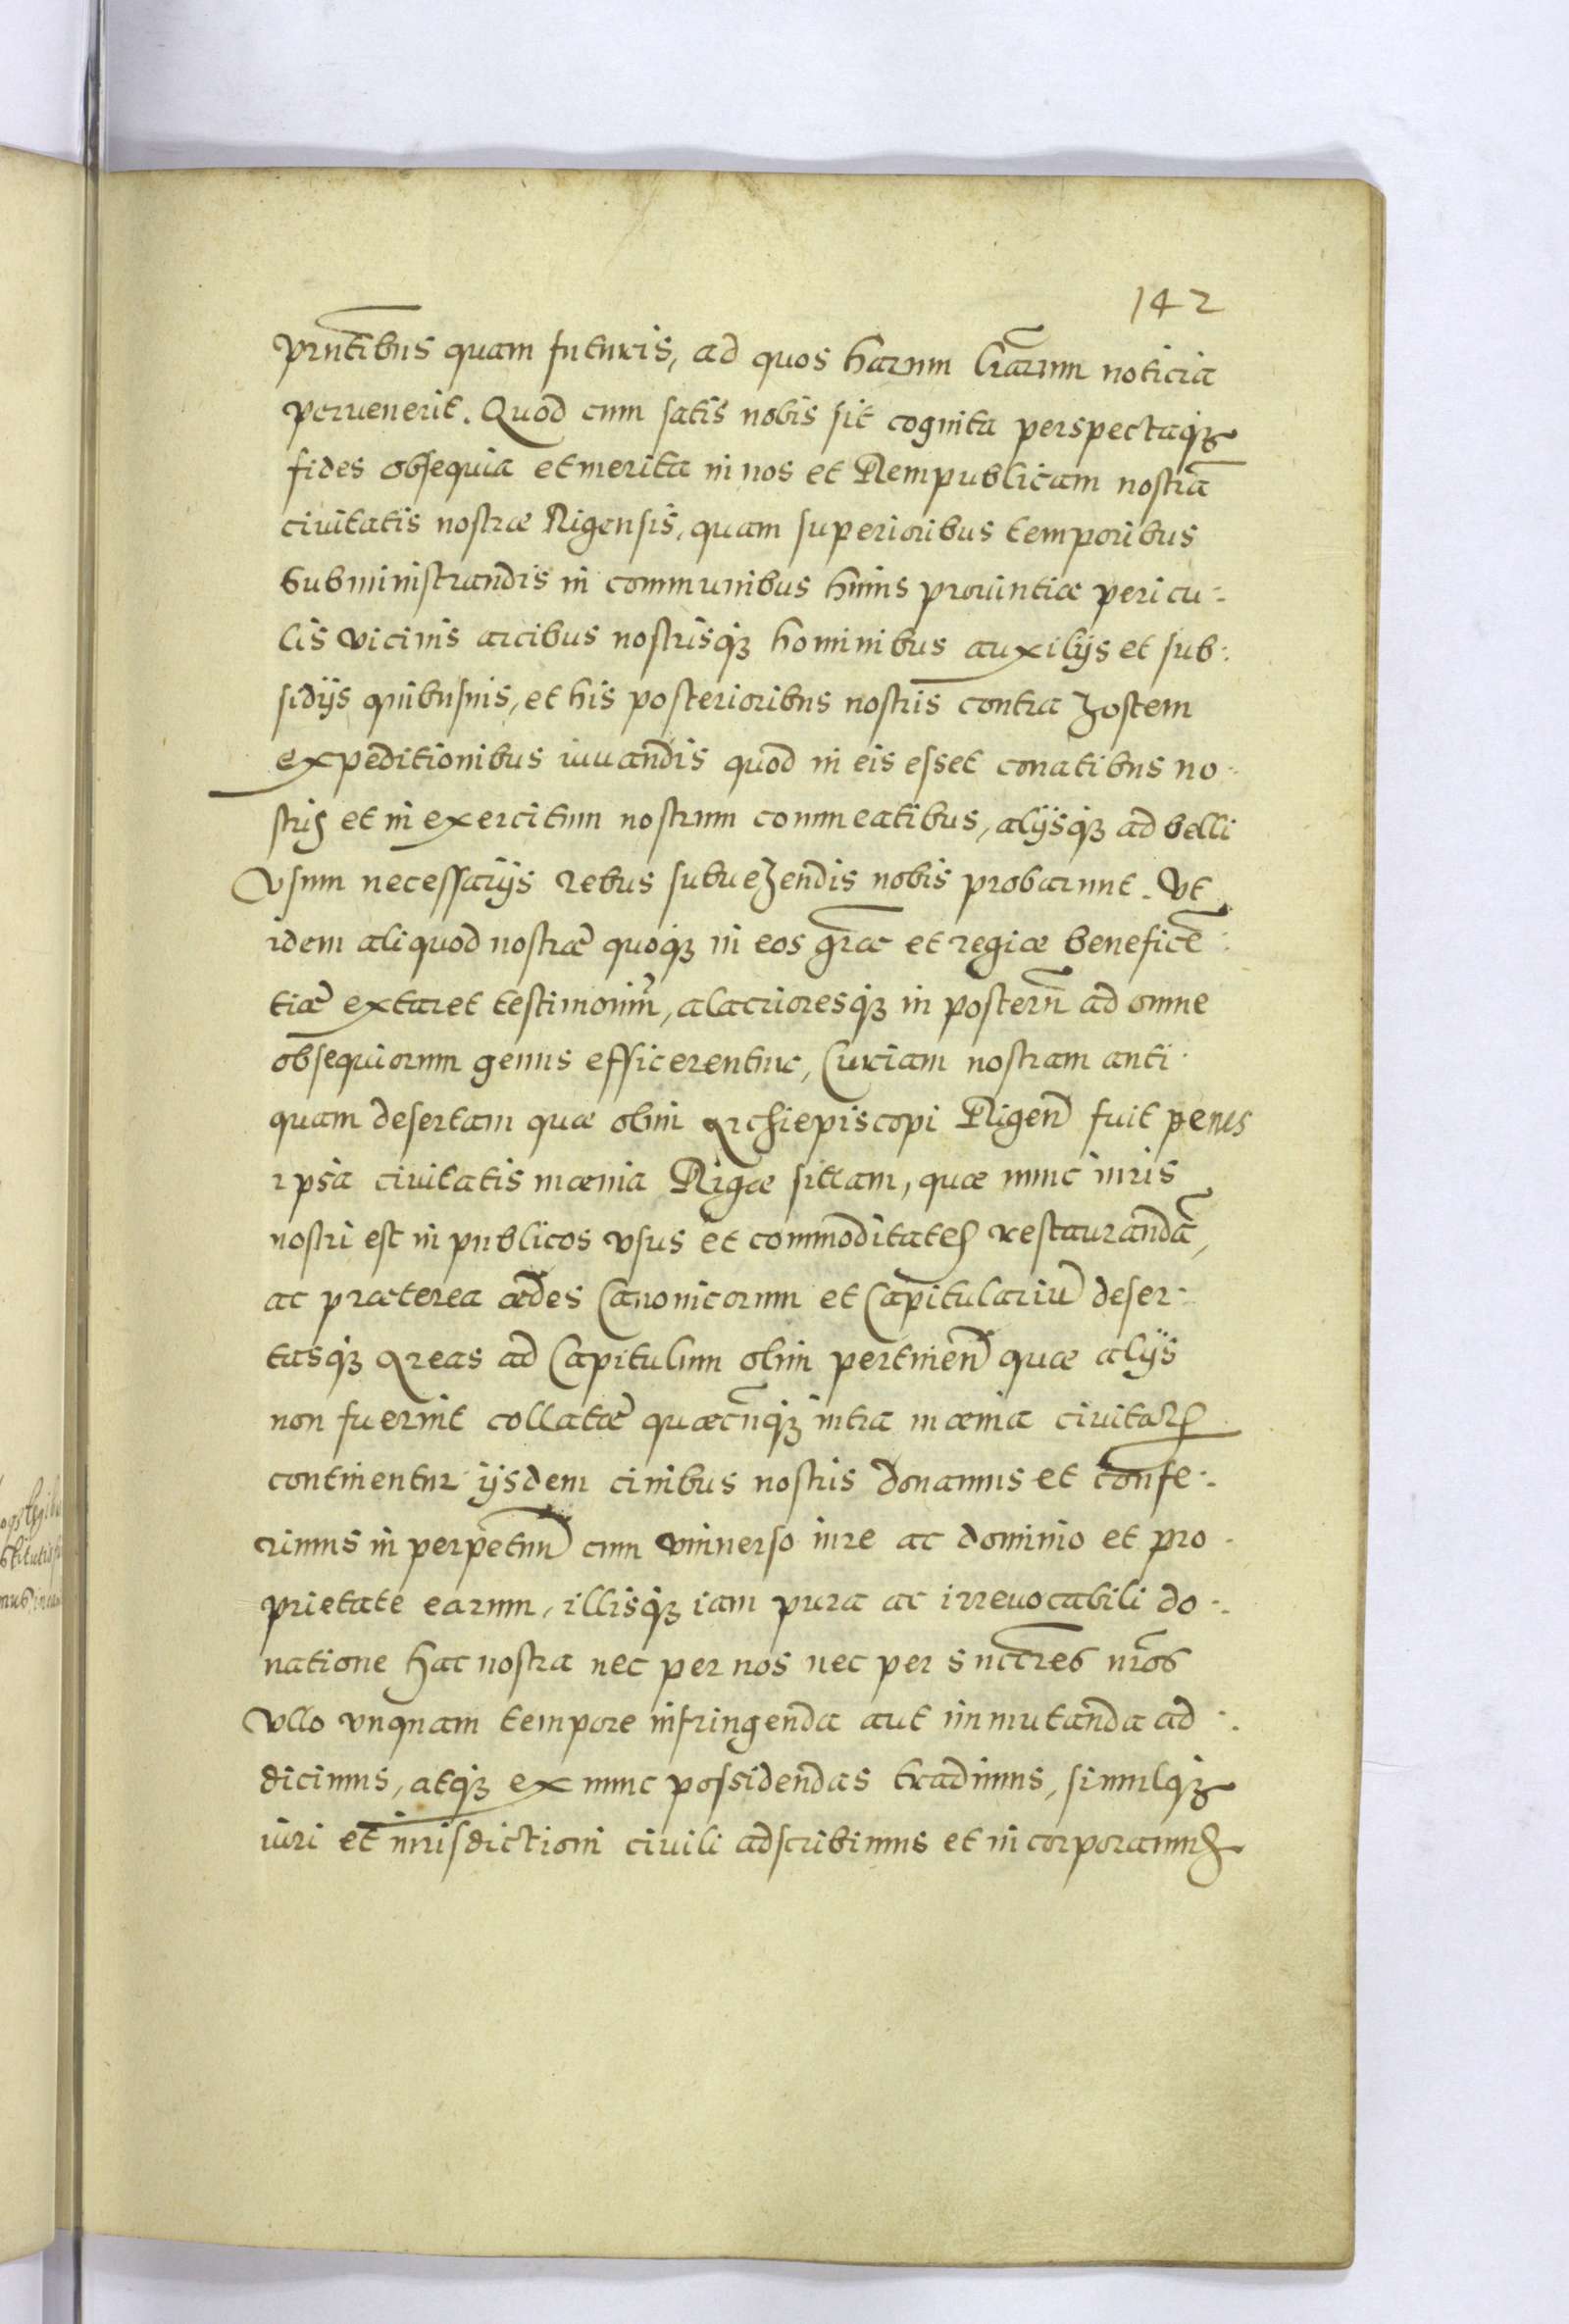 142
pruntibus quam futuris, ad quos harum lrarum noticia
peruenerit. Quod cum satis nobis sit cognita perspectaq3
fides obsequia et merita in nos et Rempublicam nostrã
civitatis nostræ Rigensis, quam superioribus temporibus
subministrandis in communibus huius provintiæ pericu-
lis vicinis arcibus nostrisq3 hominibus auxilijs et sub-
sidijs quibusuis, et his posterioribus nostris contra hostem
expeditionibus iuuandis quod in eis esset conatibus no-
stris et in exercitum nostrum commeatibus, alijsq3 ad belli
vsum necessarijs rebus subuehendis nobis probarunt. Vt
idem aliquod nostræ quoq3 in eos græ et regiæ beneficẽ-
tiæ extaret testimoniũ, alacrioresq3 in posterũ ad omne
obsequiorum genus efficerentur, Curiam nostram anti-
quam desertam quæ olim Archiepiscopi Rigen̄ fuit penes
ipsa civitatis mænia Rigæ sitam, quæ nunc iuris
nostri est in publicos vsus et commoditates restaurandã,
ac præterea ædes Canonicorum et Capitulariũ deser-
tasq3 Areas ad Capitulum olim pertinen̄ quæ alijs
non fuerint collatæ quæcũq3 intra mænia civitatis
continentur ijsdem civibus nostris donamus et confe-
rimus in perpetuũ cum vniuerso iure ac dominio et pro-
prietate earum, illisq3 iam pura ac irreuocabili do-
natione hac nostra nec per nos nec per succres nros
vllo vnquam tempore infringenda aut immutanda ad-
dicimus, atq3 ex nunc possidendas tradimus, simulq3
iuri et iurisdictioni civili adscribimus et incorporamus